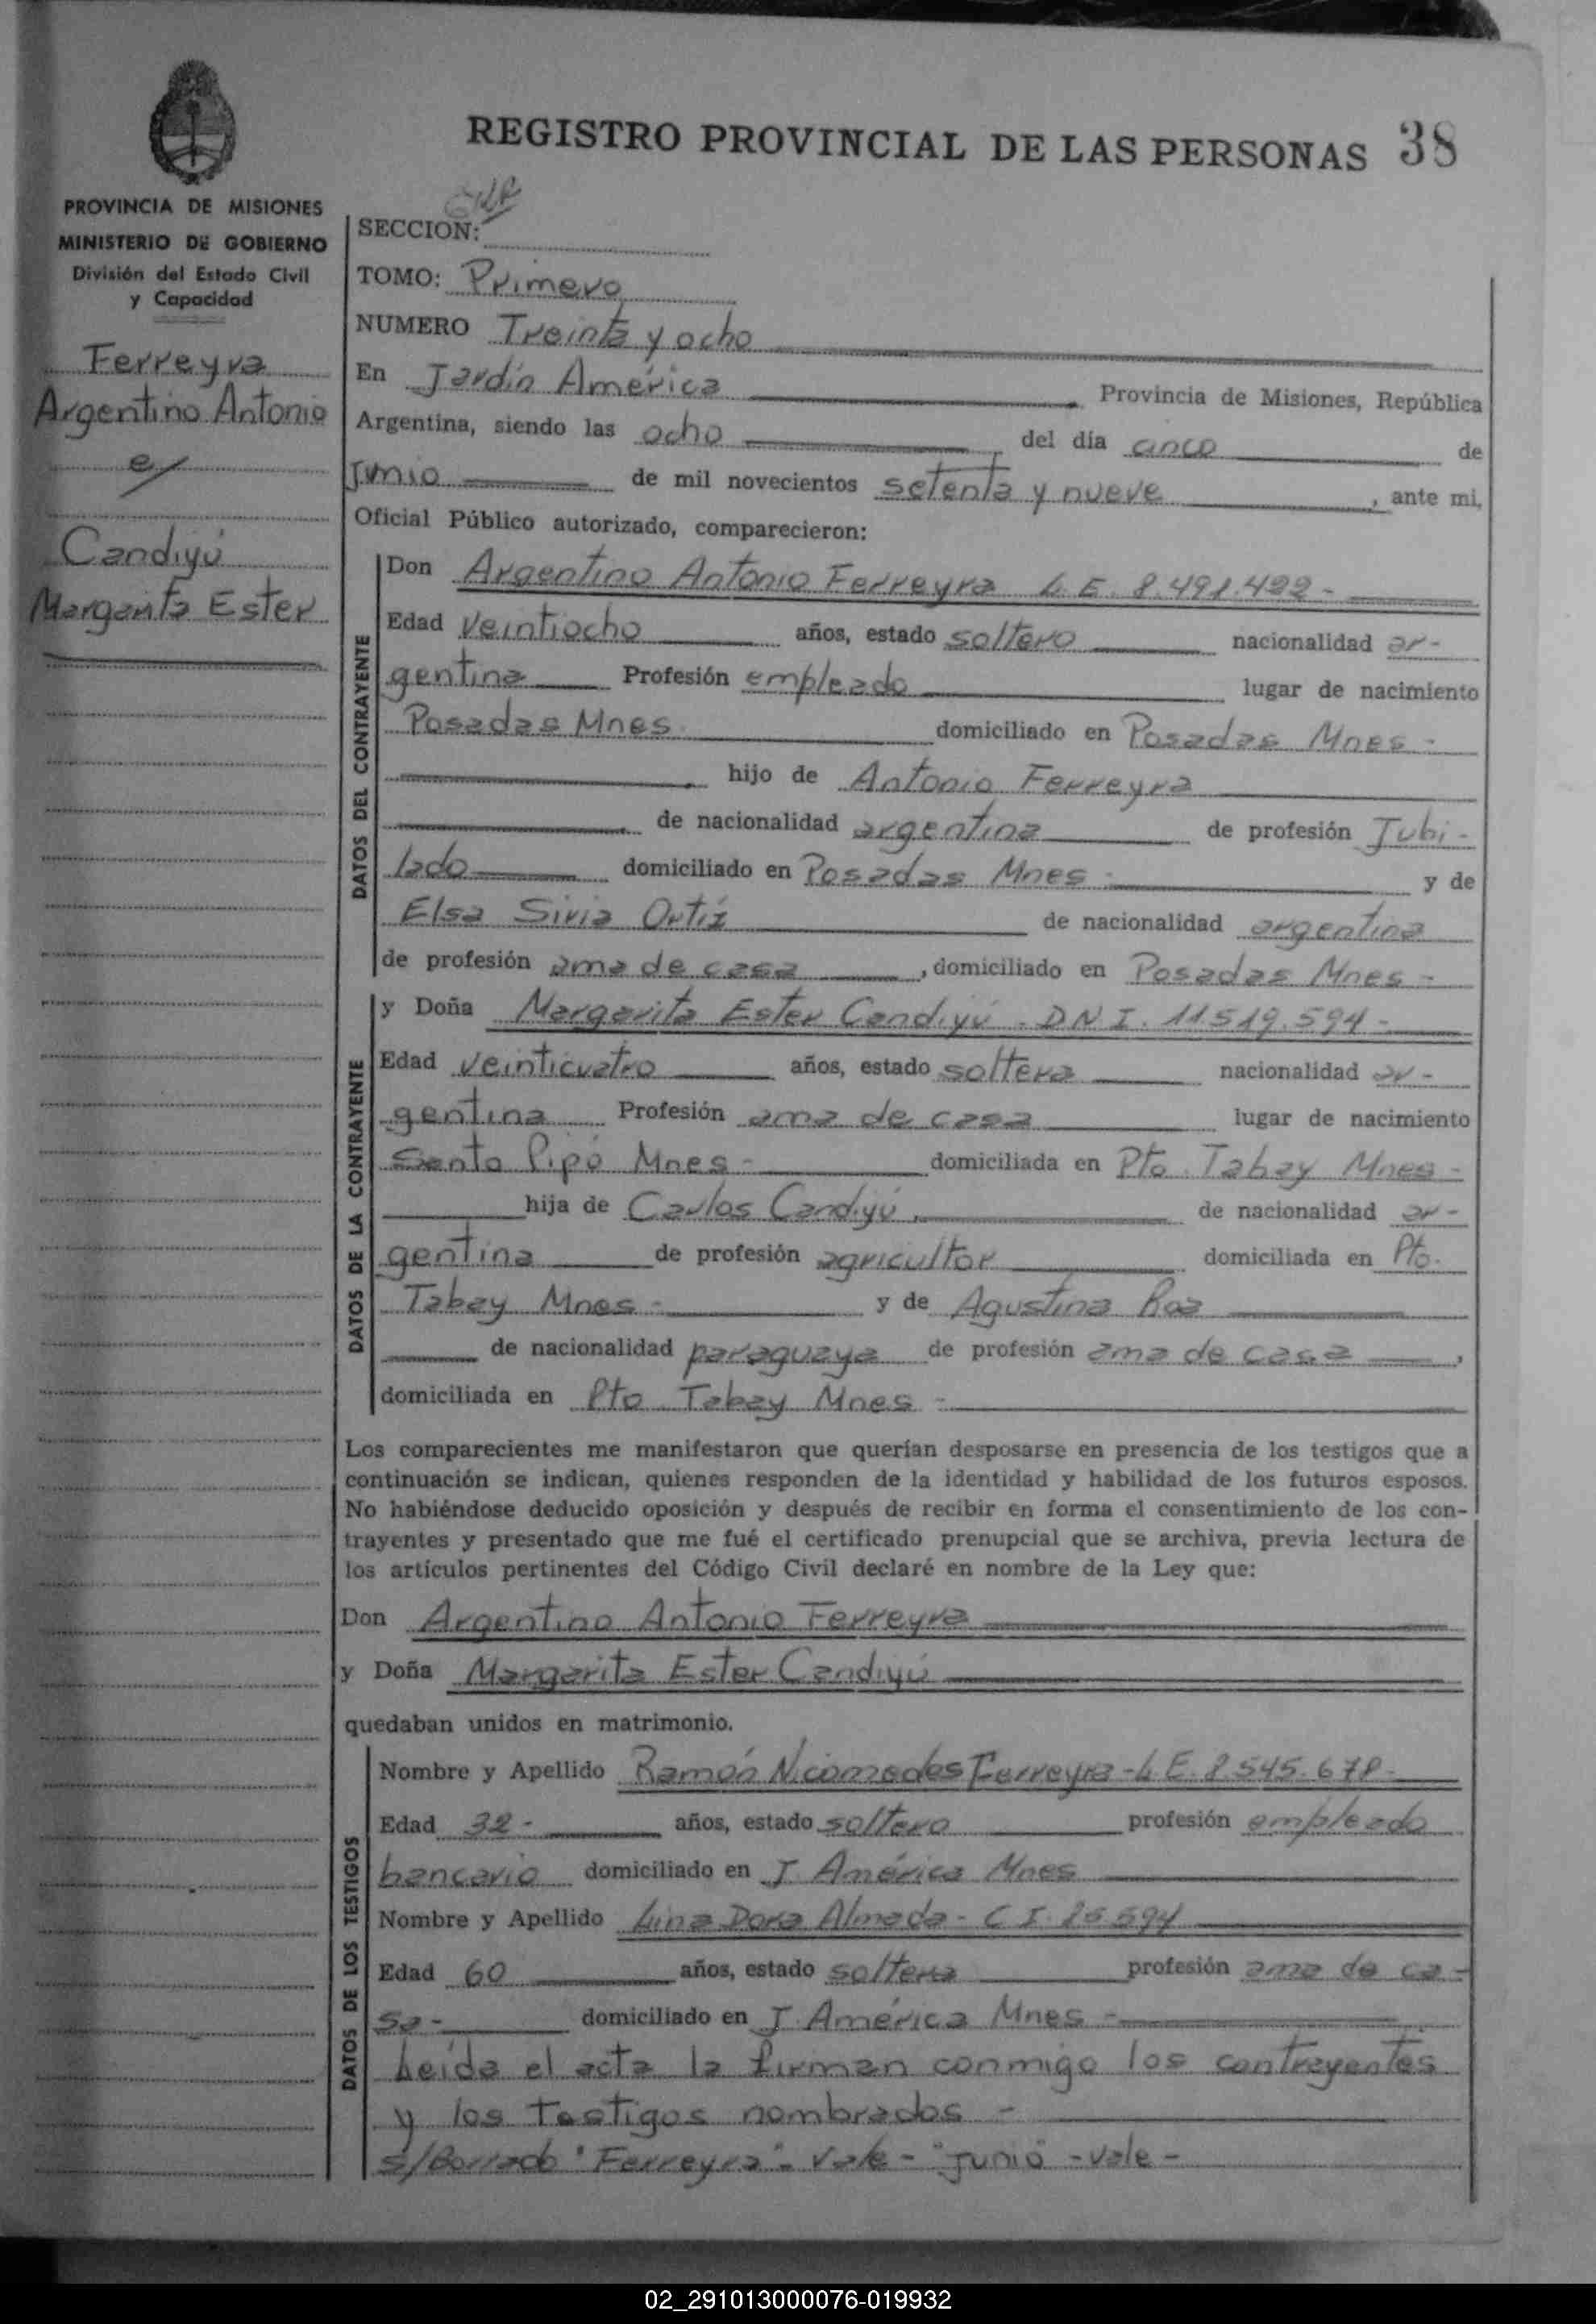 REGISTRO PROVINCIAL DE LAS PERSONAS 38
PROVINCIA DE MISIONES
MINISTERIO DE GOBIERNO
División del Estado Civil
y Capacidad
Ferreyra
Argentino Antonio
c/
Candiyú
Margarita Ester
SECCION:
TOMO: Primero
NUMERO Treinta y ocho
En Jardín América Provincia de Misiones, República
Argentina, siendo las ocho del día cinco de
Junio de mil novecientos setenta y nueve, ante mi,
Oficial Público autorizado, comparecieron:
DATOS DEL CONTRAYENTE
Don Argentino Antonio Ferreyra L.E. 8.491.422-
Edad veintiocho años, estado soltero nacionalidad ar-
gentina Profesión empleado lugar de nacimiento
Posadas Mnes. domiciliado en Posadas Mnes-
hijo de Antonio Ferreyra
de nacionalidad argentina de profesión Jubi-
lado domiciliado en Posadas Mnes- y de
Elsa Ortíz de nacionalidad argentina
de profesión ama de casa, domiciliado en Posadas Mnes-
DATOS DE LA CONTRAYENTE
y Doña Margarita Ester Candiyú - DNI. 11519.594-
Edad veinticuatro años, estado soltera nacionalidad ar-
gentina Profesión ama de casa lugar de nacimiento
Santo Pipó Mnes- domiciliada en Pto Tabay Mnes-
hija de Carlos Candiyú, de nacionalidad ar-
gentina de profesión agricultor domiciliada en Pto.
Tabay Mnes- y de Agustina Roa
de nacionalidad paraguaya de profesión ama de casa,
domiciliada en Pto Tabay Mnes-
Los comparecientes me manifestaron que querían desposarse en presencia de los testigos que a
continuación se indican, quienes responden de la identidad y habilidad de los futuros esposos.
No habiéndose deducido oposición y después de recibir en forma el consentimiento de los con-
trayentes y presentado que me fué el certificado prenupcial que se archiva, previa lectura de
los artículos pertinentes del Código Civil declaré en nombre de la Ley que:
Don Argentino Antonio Ferreyra
y Doña Margarita Ester Candiyú
quedaban unidos en matrimonio.
DATOS DE LOS TESTIGOS
Nombre y Apellido Ramón Nicomedes Ferreyra - L.E. 8.545.678-
Edad 32- años, estado soltero profesión empleado
bancario domiciliado en J América Mnes
Nombre y Apellido Lina Dora Almada - C I.
Edad 60 años, estado soltera profesión ama de ca-
sa- domiciliado en J América Mnes-
Leida el acta la firman conmigo los contrayentes
y los testigos nombrados -
s/Borrado "Ferreyra"- vale - "junio" - vale -
02_291013000076-019932